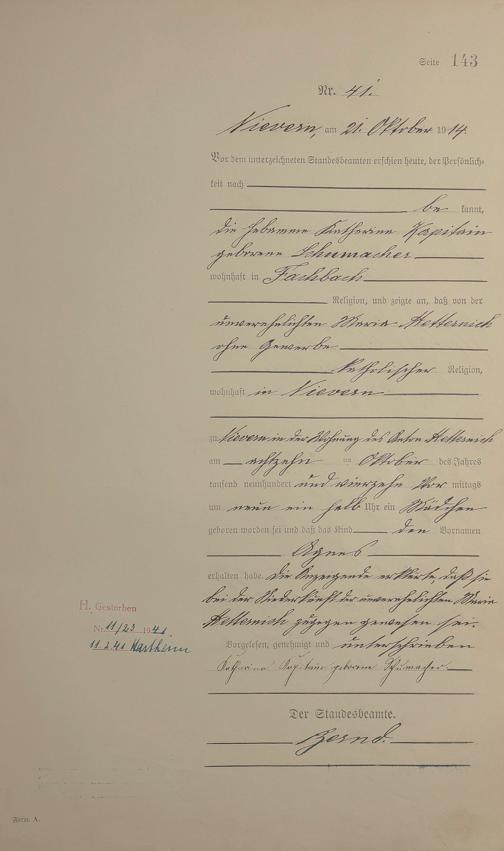 Seite 143
Nr. 41.
Nievern, am 21. Oktober 1914.
Vor dem unterzeichneten Standesbeamten erschien heute, der Persönlich-
keit nach
be kannt,
die Hebamme Katharina Kapitain
geborene Schumacher
wohnhaft in Fachbach
Religion, und zeigte an, daß von der
unverehelichten Maria Hetternich
ohne Gewerbe
katholischer Religion,
wohnhaft in Nievern
zu Nievern in der Wohnung des Anton Hetternich
am achtzehn ten Oktober des Jahres
tausend neunhundert und vierzehn Vor mittags
um neun ein halb Uhr ein Mädchen
geboren worden sei und daß das Kind den Vornamen
Agnes
erhalten habe. Die Anzeigende erklärte, daß sie
bei der Niederkunft der unverehelichten Maria
Hetternich zugegen gewesen sei.
Vorgelesen, genehmigt und unterschrieben
Katharina Kapitain geborene Schumacher
Der Standesbeamte.
H. Gestorben
Nr. 11/23 1941
11.2.41 Hartheim
Form. A.